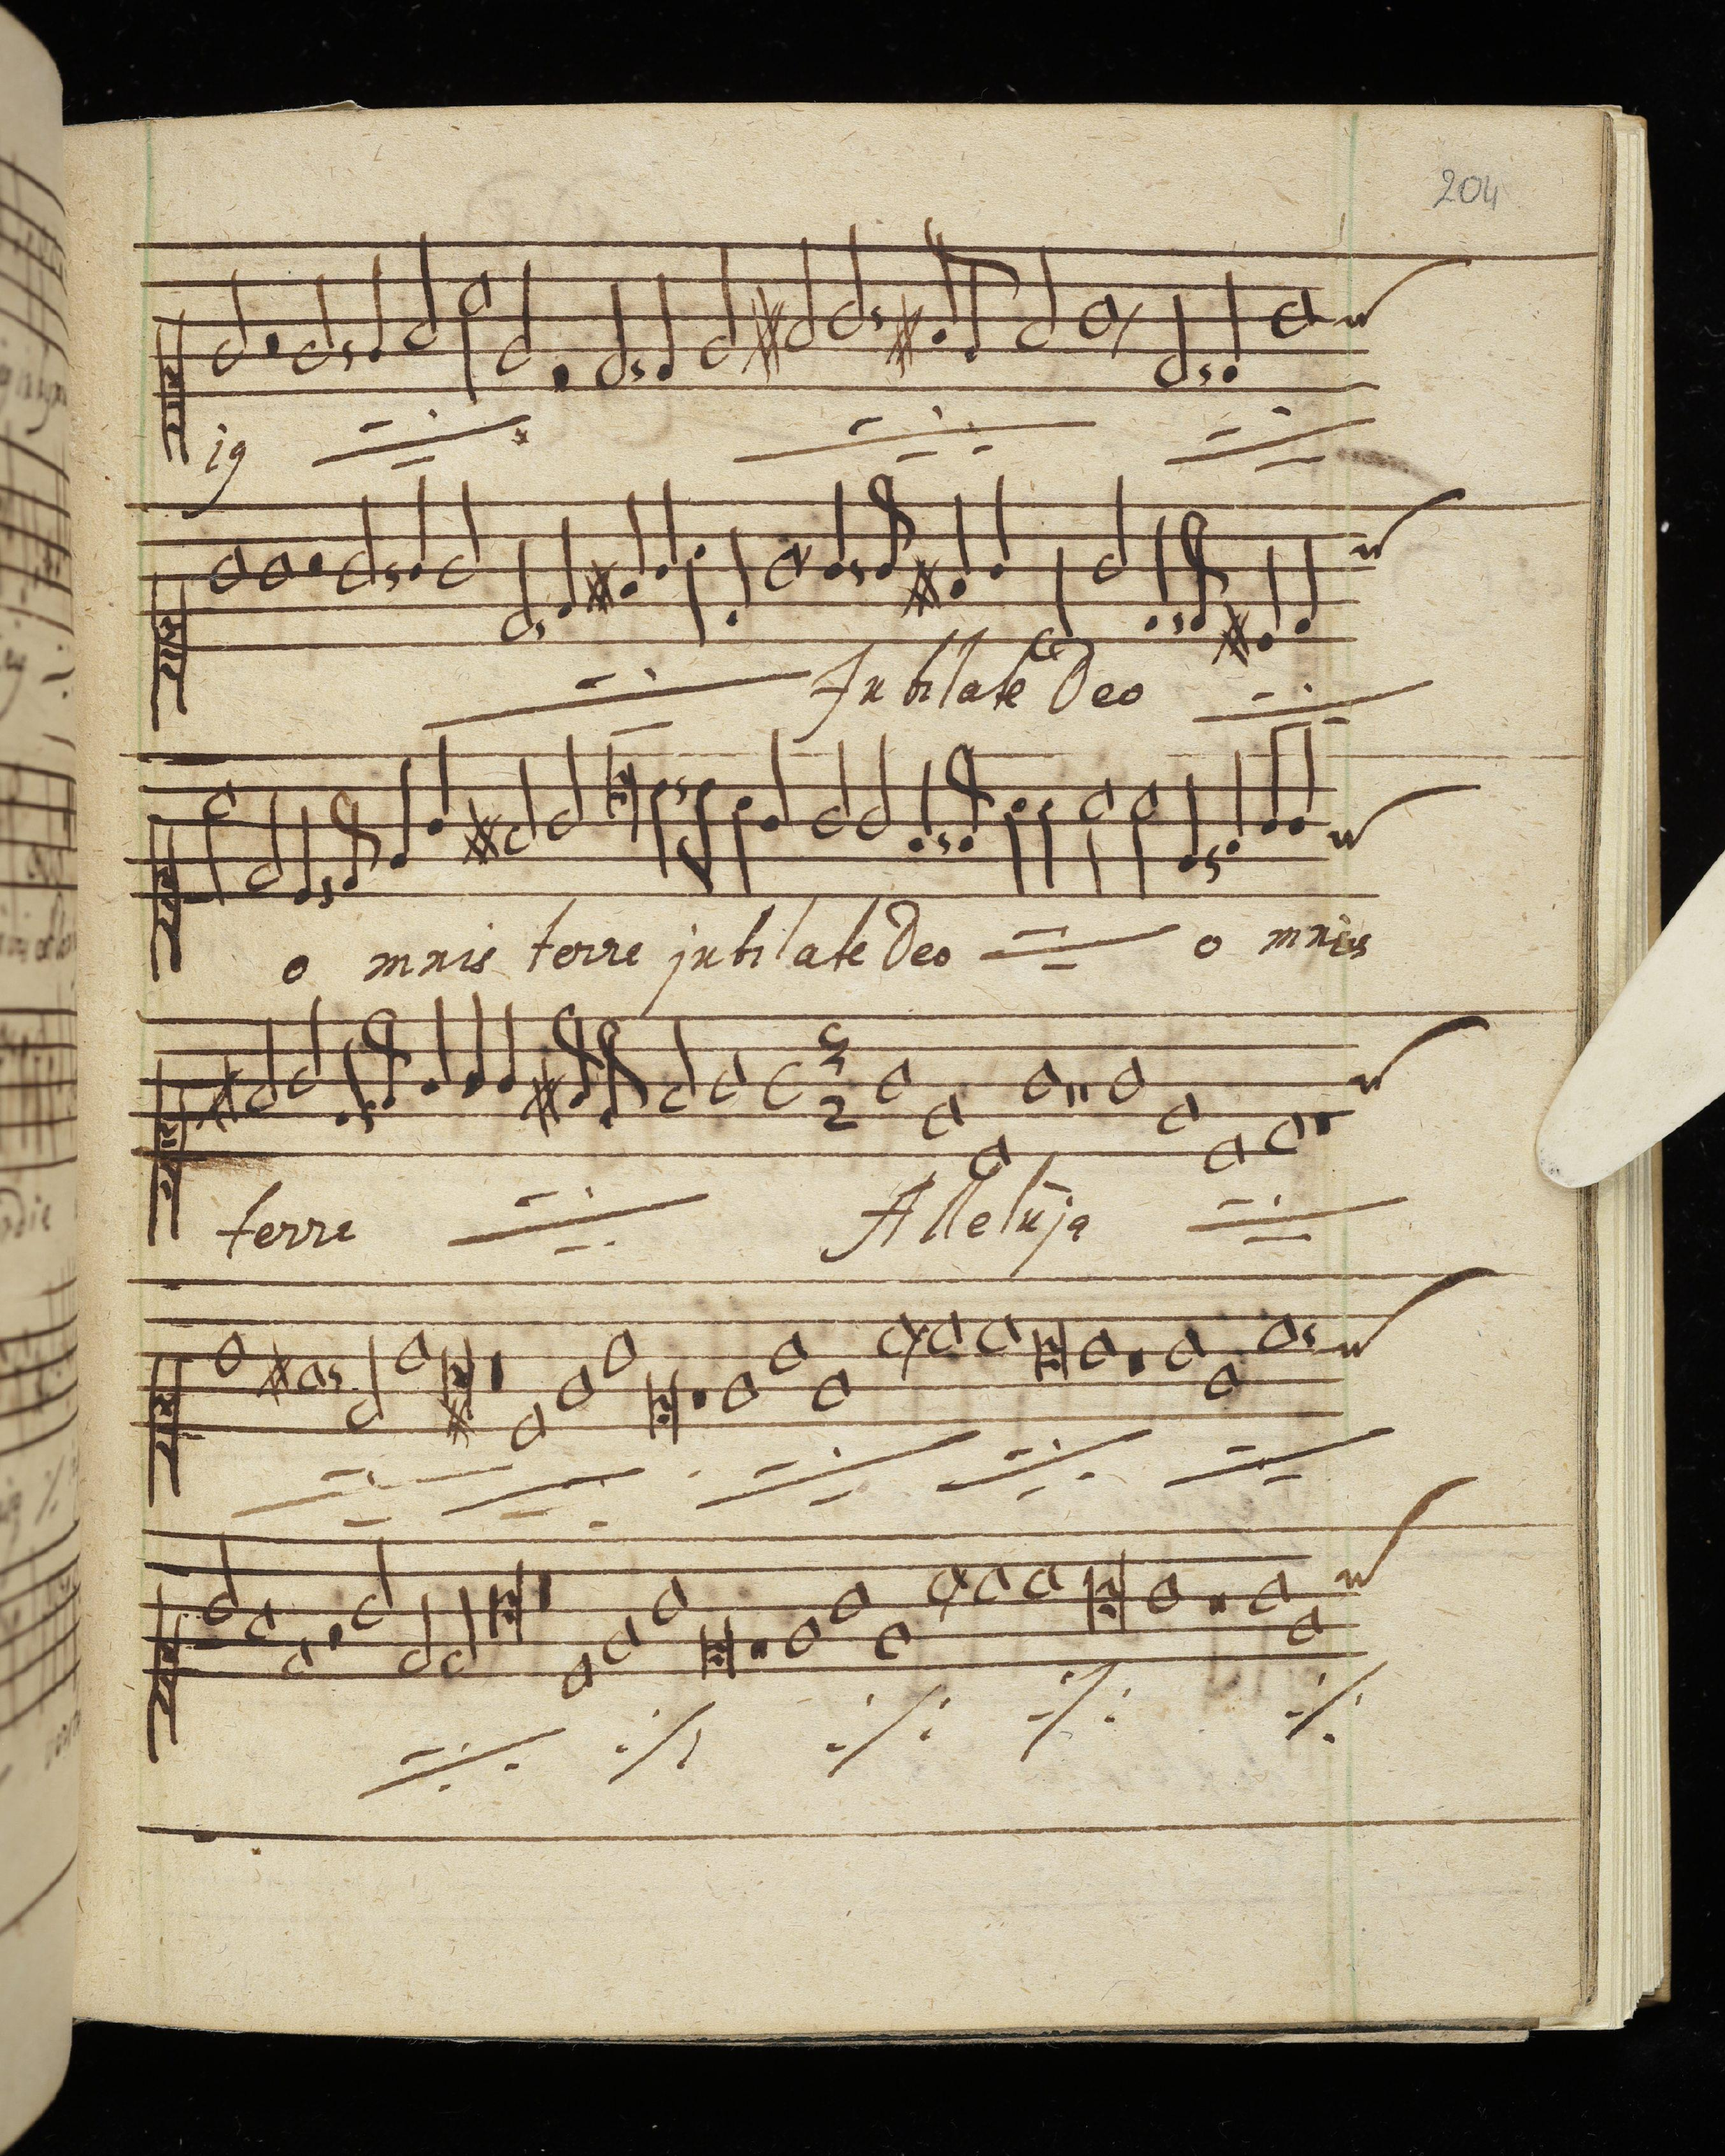 204
ig
Jubilate Deo
o mnis terre jubilate Deo o mnis
3
2
terre Alleluja